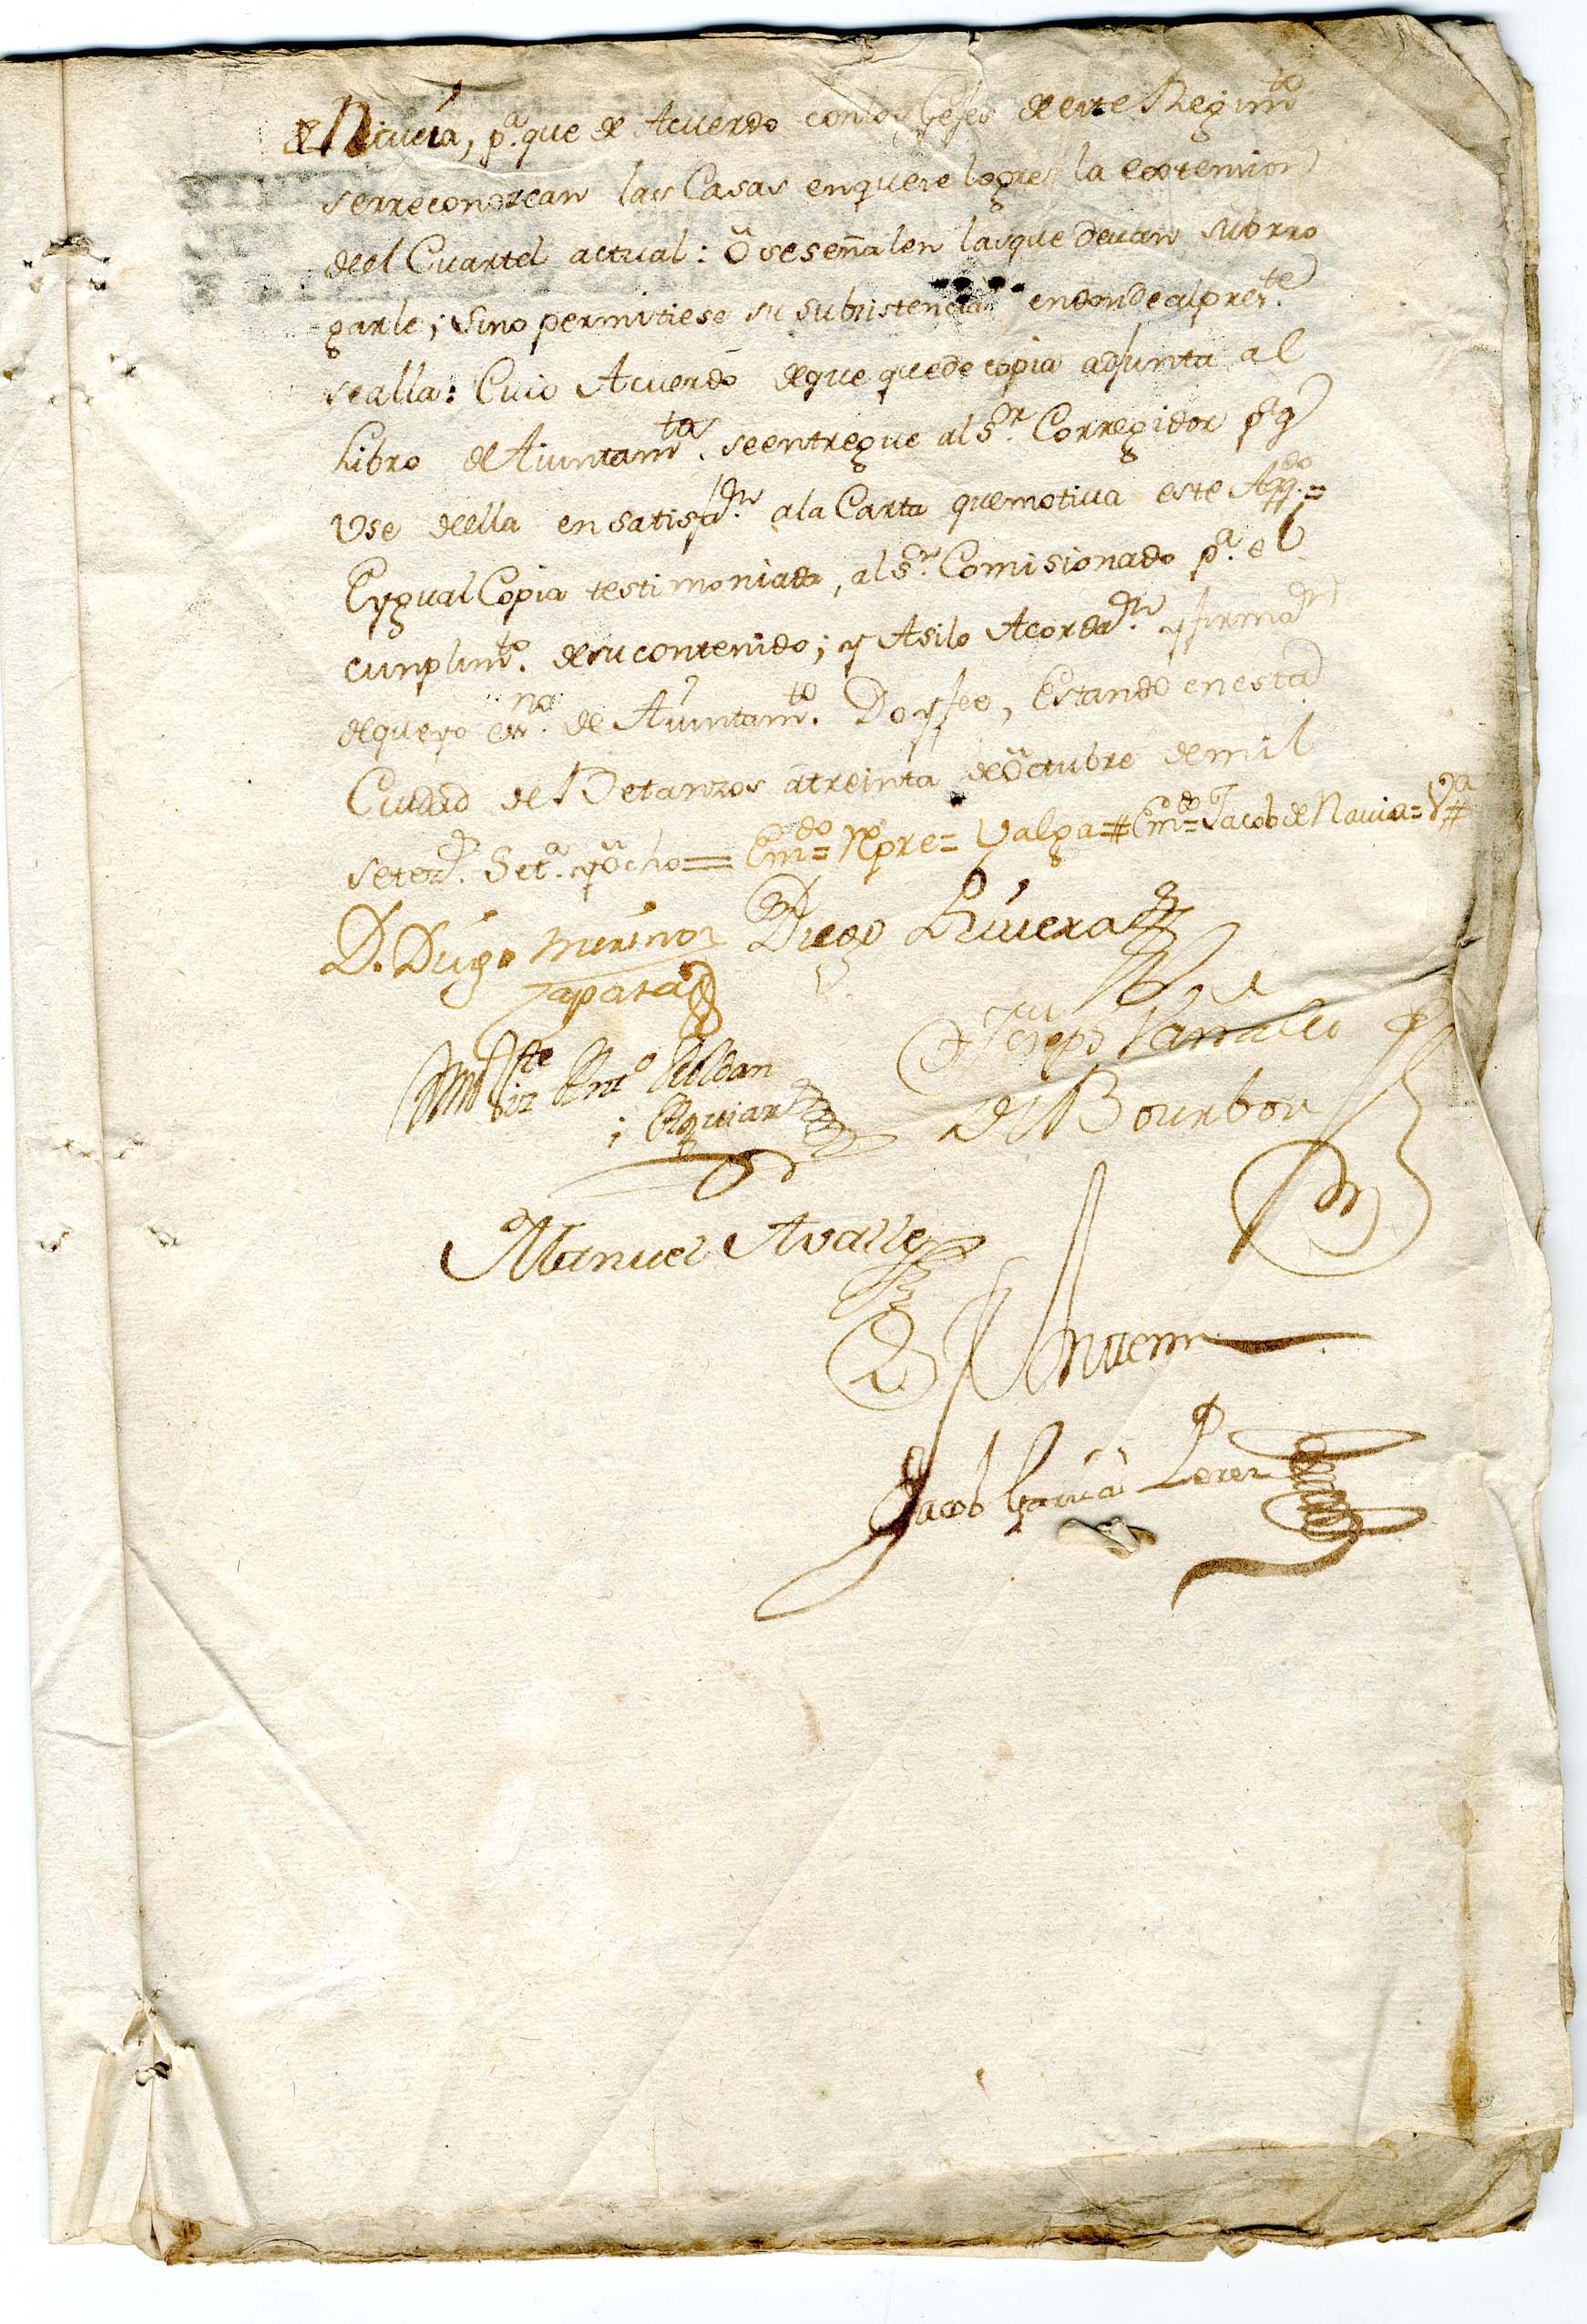 de Navia, p.ª que de Acuerdo con los Gefes de este Regim.to
se rreconozcan las Casas enquese logre la extension
deel Cuartel actual: Ô se señalen las que devan subrro
garle; sino permitiese su subsistencia en donde alpres.te
sealla: Cuio Acuerdo deque quede copia adjunta al
Libro de Aiuntam.to seentregue al S.r Corregidor p.ª q
Use deella en satisf.on ala Carta quemotiua este Acq.do =
E ygual Copia testimoniada, al S.r Comisionado p.ª el
cunplim.to de su contenido; y Asilo Acordar.n y firmar.n
deque yo es.no de Aiuntam.to Doy fee, Estando en esta
Ciudad de Betanzos â treinta de Octubre de mil
setez.s Set.ª y Ôcho = Em.do = Npre = Valga # Em.do = Jacob de Navia = V.ª #
D. Diego Merino Diego Rivera
Zapata
Joseph Vanallo
Vi.te Ant.o Roldan
i Aguiar de Bourbon
Manuel Avalle
Jacob Garcia Perez